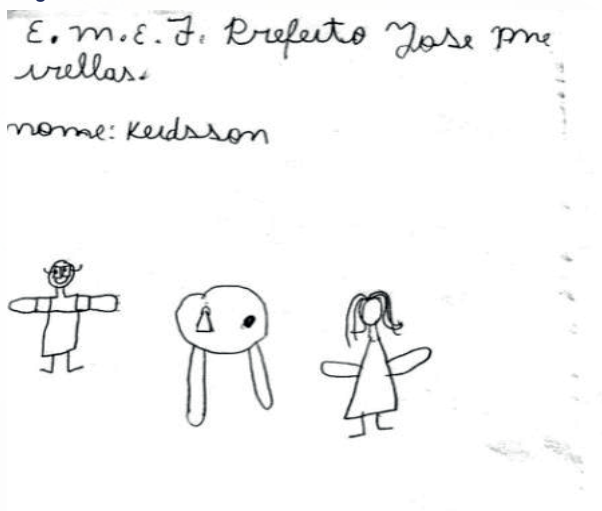 E. m. E. F. Prefeito Jose me
irellas.
nome: Keidsson